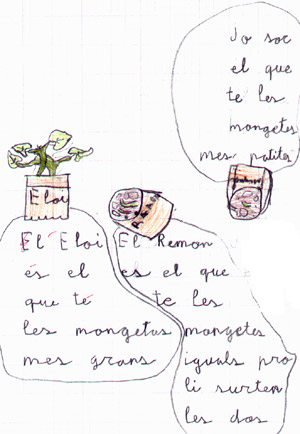 Jo soc
el que
te les
mongetes
mes petites
Eloi
Remon
El Eloi
és el
que té
les mongetas
mes grans
El Remon
es el que
te les
mongetes
iguals pro
li surten
les dos